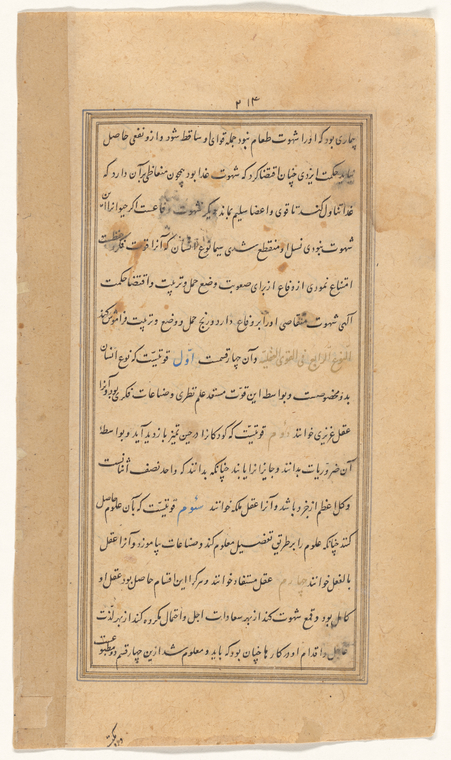 ۲۱۴
بیماری بود که اورا شهوت طعام نبود جمله قوای او ساقط شود و ازو نفعی حاصل
نیاید حکمت ایزدی چنان اقتضا کرد که شهوت غذا بود چون متقاضی بران دارد که
غذا تناول کند تا قوی و اعضا سلیم بماند دیگر شهوت وقاعست اگر حیوانرا این
شهوت نبودی نسل او منقطع شدی سیما نوع انسان که آنرا قوت فکر
امتناع نمودی از وقاع از برای صعوبت وضع حمل و تربیت و اقتضا حکمت
الهی شهوت متقاضی او را بر وقاع دارد و رنج حمل و وضع و تربیت فراموش کند
النوع الرابع فی القوی العقلیة وآن چهار قسمت اول قوتیست که نوع انسان
بدو مخصوصست و بواسطه این قوت مستعد علم نظری و صناعات فکری بود و آنرا
عقل غریزی خوانند دوم قوتیست که کودکانرا در حین تمیز بازدید آید و بواسطه
آن ضروریات بدانند و جایزاترا یابند چنانکه بدانند که واحد نصف اثنانست
و کل اعظم از جزو باشد و آنرا عقل ملکه خوانند سوم قوتیست که بآن علوم حاصل
کند چنانکه علوم را بر طریق تفصیل معلوم کند و صناعات بیاموزد و آنرا عقل
بالفعل خوانند چهارم عقل مستفاد خوانند و هر کرا این اقسام حاصل بود عقل او
کامل بود و قمع شهوت کند از بهر سعادات اجل و احتمال مکروه کند از بهر لذت
عاجل و اقدام او در کارها چنان بود که باید و معلوم شد ازین چهار قسم دو مطبوعست